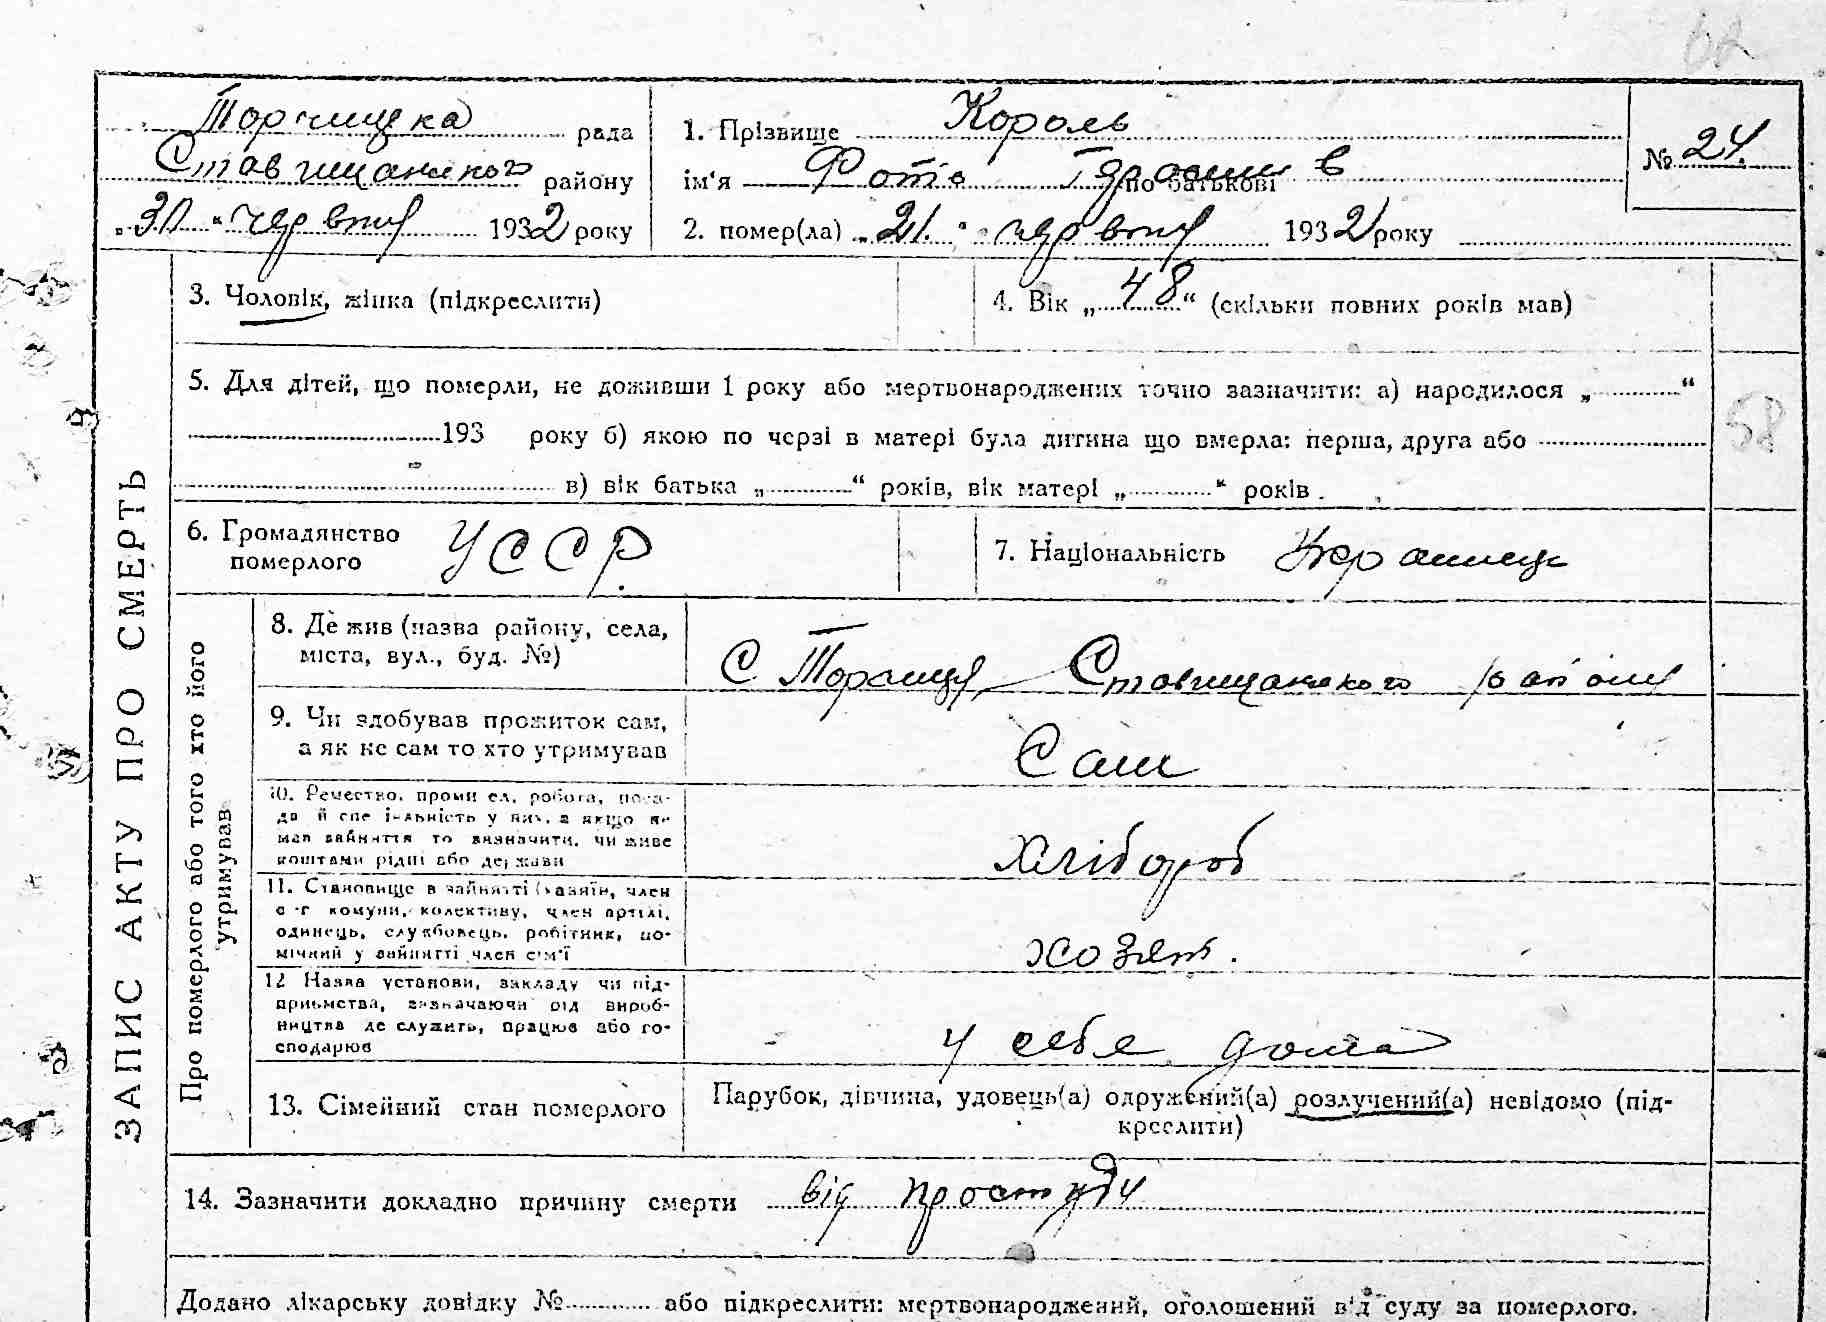 62
Торчицка рада
Ставищанського району
„30“ червня 1932 року
1. Прізвище Король
ім'я Фотій по батькові Гарасимів
2. помер(ла) „21.“ червня 1932 року
№ 24.
3. Чоловік, жінка (підкреслити)
4. Вік „48“ (скільки повних років мав)
5. Для дітей, що померли, не доживши 1 року або мертвонароджених точно зазначити: а) народилося „ “
193 року б) якою по черзі в матері була дитина що вмерла: перша, друга або
в) вік батька „ “ років, вік матері „ “ років.
58
6. Громадянство
померлого
УССР.
7. Національність Украинець
ЗАПИС АКТУ ПРО СМЕРТЬ
Про померлого або того хто його
утримував
8. Де жив (назва району, села,
міста, вул., буд. №)
С Торчиця Ставищанського района
9. Чи здобував прожиток сам,
а як не сам то хто утримував
Сам
10. Ремество, промисел, робота, поса-
да й спеціяльність у них, а якщо не
мав зайняття то визначити, чи живе
коштами рідні або держави
Хлібороб
11. Становище в зайнятті (хазяїн, член
с-г комуни, колективу, член артілі,
одинець, службовець, робітник, по-
мічний у зайнятті член сім'ї
хозяїн.
12 Назва установи, закладу чи під-
приємства, зазначаючи рід вироб-
ництва де служить, працює або го-
сподарює
у себе дома
13. Сімейний стан померлого
Парубок, дівчина, удовець(а) одружений(а) розлучений(а) невідомо (під-
креслити)
14. Зазначити докладно причину смерти від простуди
Додано лікарську довідку № або підкреслити: мертвонароджений, оголошений від суду за померлого.